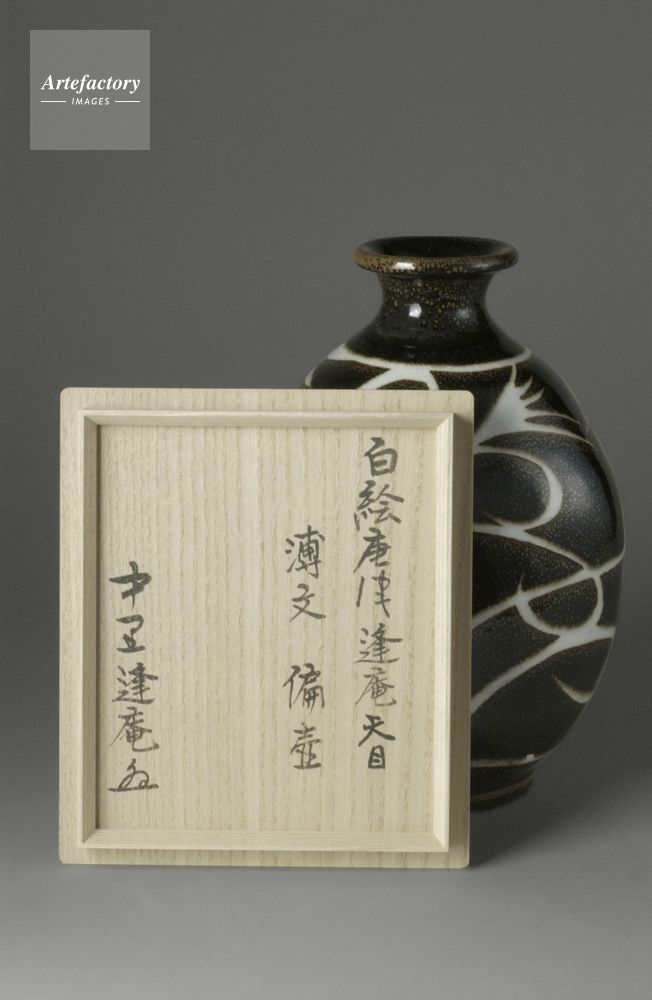 Artefactory
IMAGES
白絵唐津 逢庵天目
文 偏壺
中里逢庵